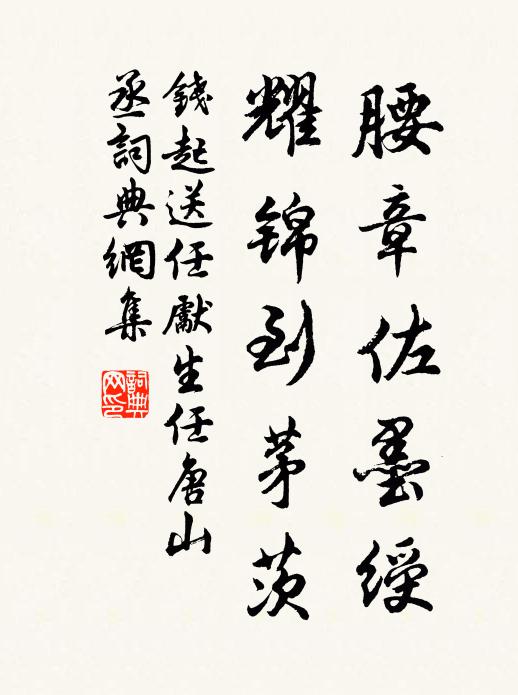 腰章佐墨綬
耀錦到茅茨
錢起送任獻生任唐山
丞詞典網集
詞典
网印